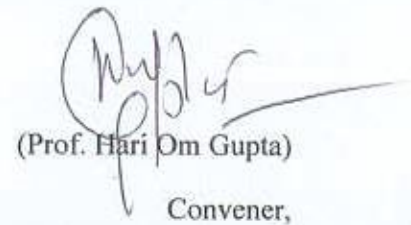 (Prof. Hari Om Gupta)
Convener,